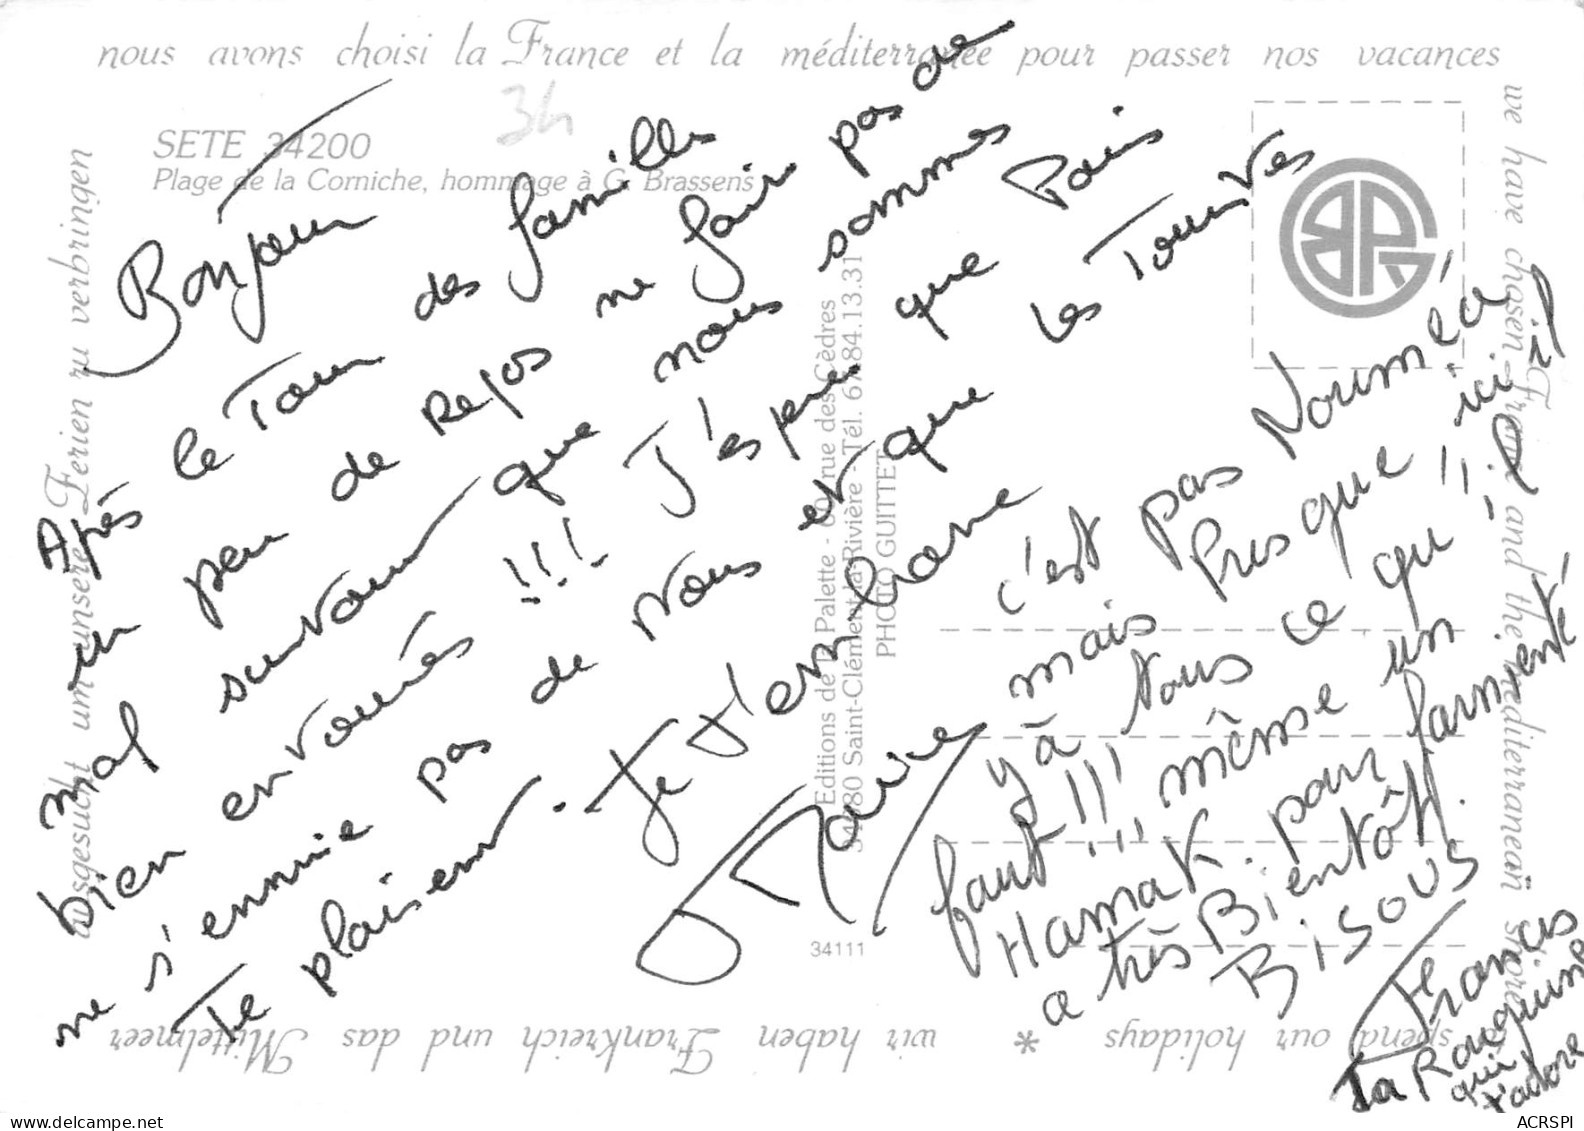 nous avons choisi la France et la méditerranée pour passer nos vacances
we have chosen France and the mediterranean shore to spend our holidays
* wir haben Frankreich und das Mittelmeer
ausgesucht um unsere Ferien zu verbringen
34
SETE 34200
Plage de la Corniche, hommage à G. Brassens
Bonjour
Après le Tour des familles
un peu de Repos ne fair pas de
mal surtout que nous sommes
bien entourés !!! J'espère que Paris
ne s'ennuie pas de Nous et que les Touristes
Te plaisent. Je t'embrasse
Marie
c'est pas Nouméa
mais Presque ici il
y à Tous ce qu'il
faut !!! même un
Hamak. pour farniente
a très Bientôt.
BISOUS
Francis
Ta Rouquine
qui
t'adore
Editions de la Palette - rue des Cèdres
34980 Saint-Clément-la-Rivière - Tél. 67.84.13.31
PHOTO GUITTET
34111
ACRSPI